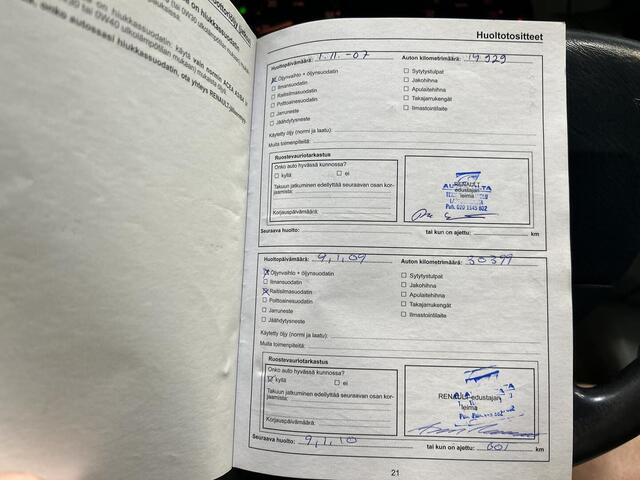 Huoltotositteet
Huoltopäivämäärä: 1.11.-07 Auton kilometrimäärä: 14929
Öljynvaihto + öljynsuodatin
Ilmansuodatin
Raitisilmasuodatin
Polttoainesuodatin
Jarruneste
Jäähdytysneste
Sytytystulpat
Jakohihna
Apulaitehihna
Takajarrukengät
Ilmastointilaite
Käytetty öljy (normi ja laatu):
Muita toimenpiteitä:
Ruostevauriotarkastus
Onko auto hyvässä kunnossa?
kyllä ei
Takuun jatkuminen edellyttää seuraavan osan kor-
jaamista:
Korjauspäivämäärä:
RENAULT
edustajan
leima
Puh. 020 1545 802
Seuraava huolto: tai kun on ajettu: km
Huoltopäivämäärä: 9.1.09 Auton kilometrimäärä: 30399
Öljynvaihto + öljynsuodatin
Ilmansuodatin
Raitisilmasuodatin
Polttoainesuodatin
Jarruneste
Jäähdytysneste
Sytytystulpat
Jakohihna
Apulaitehihna
Takajarrukengät
Ilmastointilaite
Käytetty öljy (normi ja laatu):
Muita toimenpiteitä:
Ruostevauriotarkastus
Onko auto hyvässä kunnossa?
kyllä ei
Takuun jatkuminen edellyttää seuraavan osan kor-
jaamista:
Korjauspäivämäärä:
RENAULT edustajan
leima
Seuraava huolto: 9.1.10 tai kun on ajettu: 60t km
21